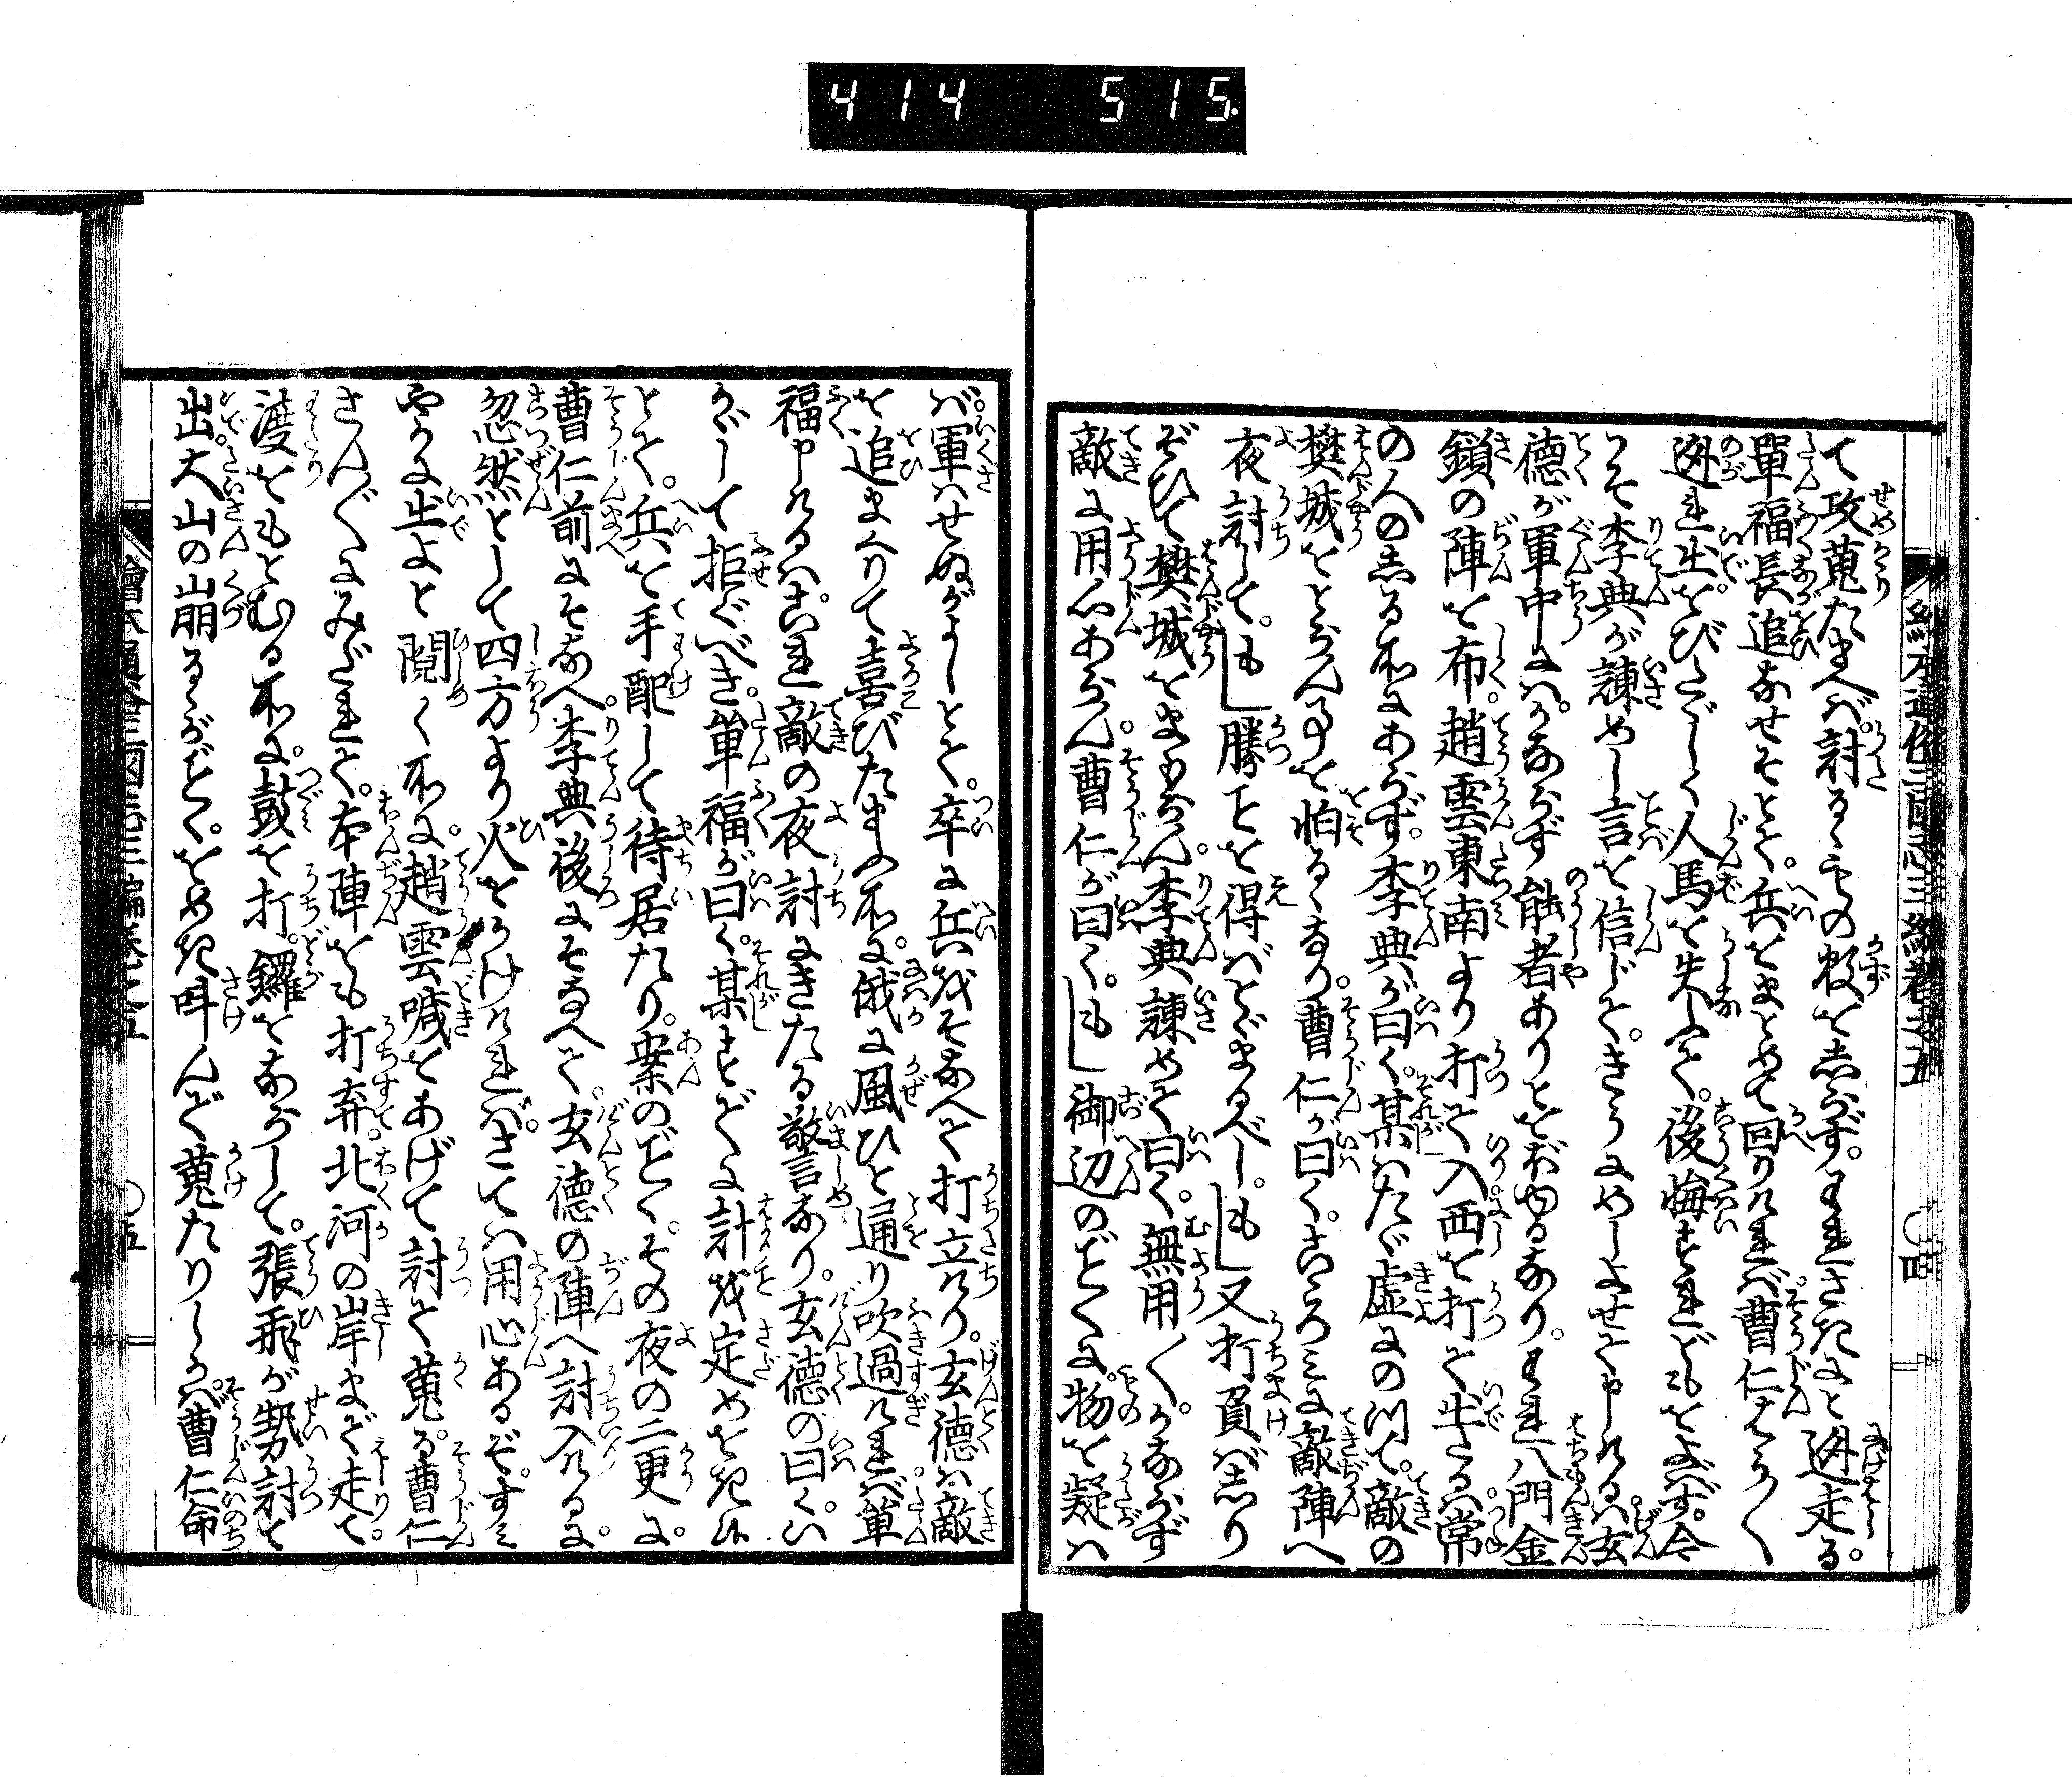 414 515.
て攻蒐たまへば。討るゝもの数をしらず。われさきにと迯走る。
單福長追なせそとて。兵をまとめて回りければ曹仁はう〳〵
迯れ出。をびたゞしく人馬を失ふて。後悔すれどもをよばず。今
こそ李典が諫めし言を信じて。きうにめしよせて申けるは。玄
德が軍中にはかならず能者ありとおぼゆるなり。われ八門金
鎖の陣を布。趙雲東南より打て入西を打て出たるは。常
の人のしる所にあらず。李典が曰く。某はたゞ虚にのつて。敵の
樊城をとらん事を怕るゝなり。曹仁が曰く。こゝろみに敵陣へ
夜討して。もし勝ことを得ばとゞまるべし。もし又打負ばしり
ぞひて樊城をまもらん。李典諫めて曰く。無用〳〵。かならず
敵に用心あらん。曹仁が曰く。もし御辺のごとくに。物を疑は
ば。軍はせぬがよしとて。卒に兵をそなへて打立けり。玄德は敵
を追まくりて喜びたまふ所に。俄に風ひと通り吹過ければ。單
福申けるは。これ敵の夜討にきたる警なり。玄德の曰く。い
かゞして拒ぐべき。單福が曰く。某すでに計を定めをき候
とて。兵を手配して待居たり。案のごとく。その夜の二更に。
曹仁前にそなへ。李典後にそなへて。玄德の陣へ討入けるに。
忽然として四方より火をかけければ。さては用心あるぞ。すミ
やかに出よと鬩く所に。趙雲喊をあげて討て蒐る。曹仁
さん〴〵にみだれて。本陣をも打弃。北河の岸まで走て。
渡をもとむる所に。鼓を打。鑼をならして。張飛が勢討て
出。大山の崩るゝがごとく。をめき呌んで蒐たりしかば。曹仁命